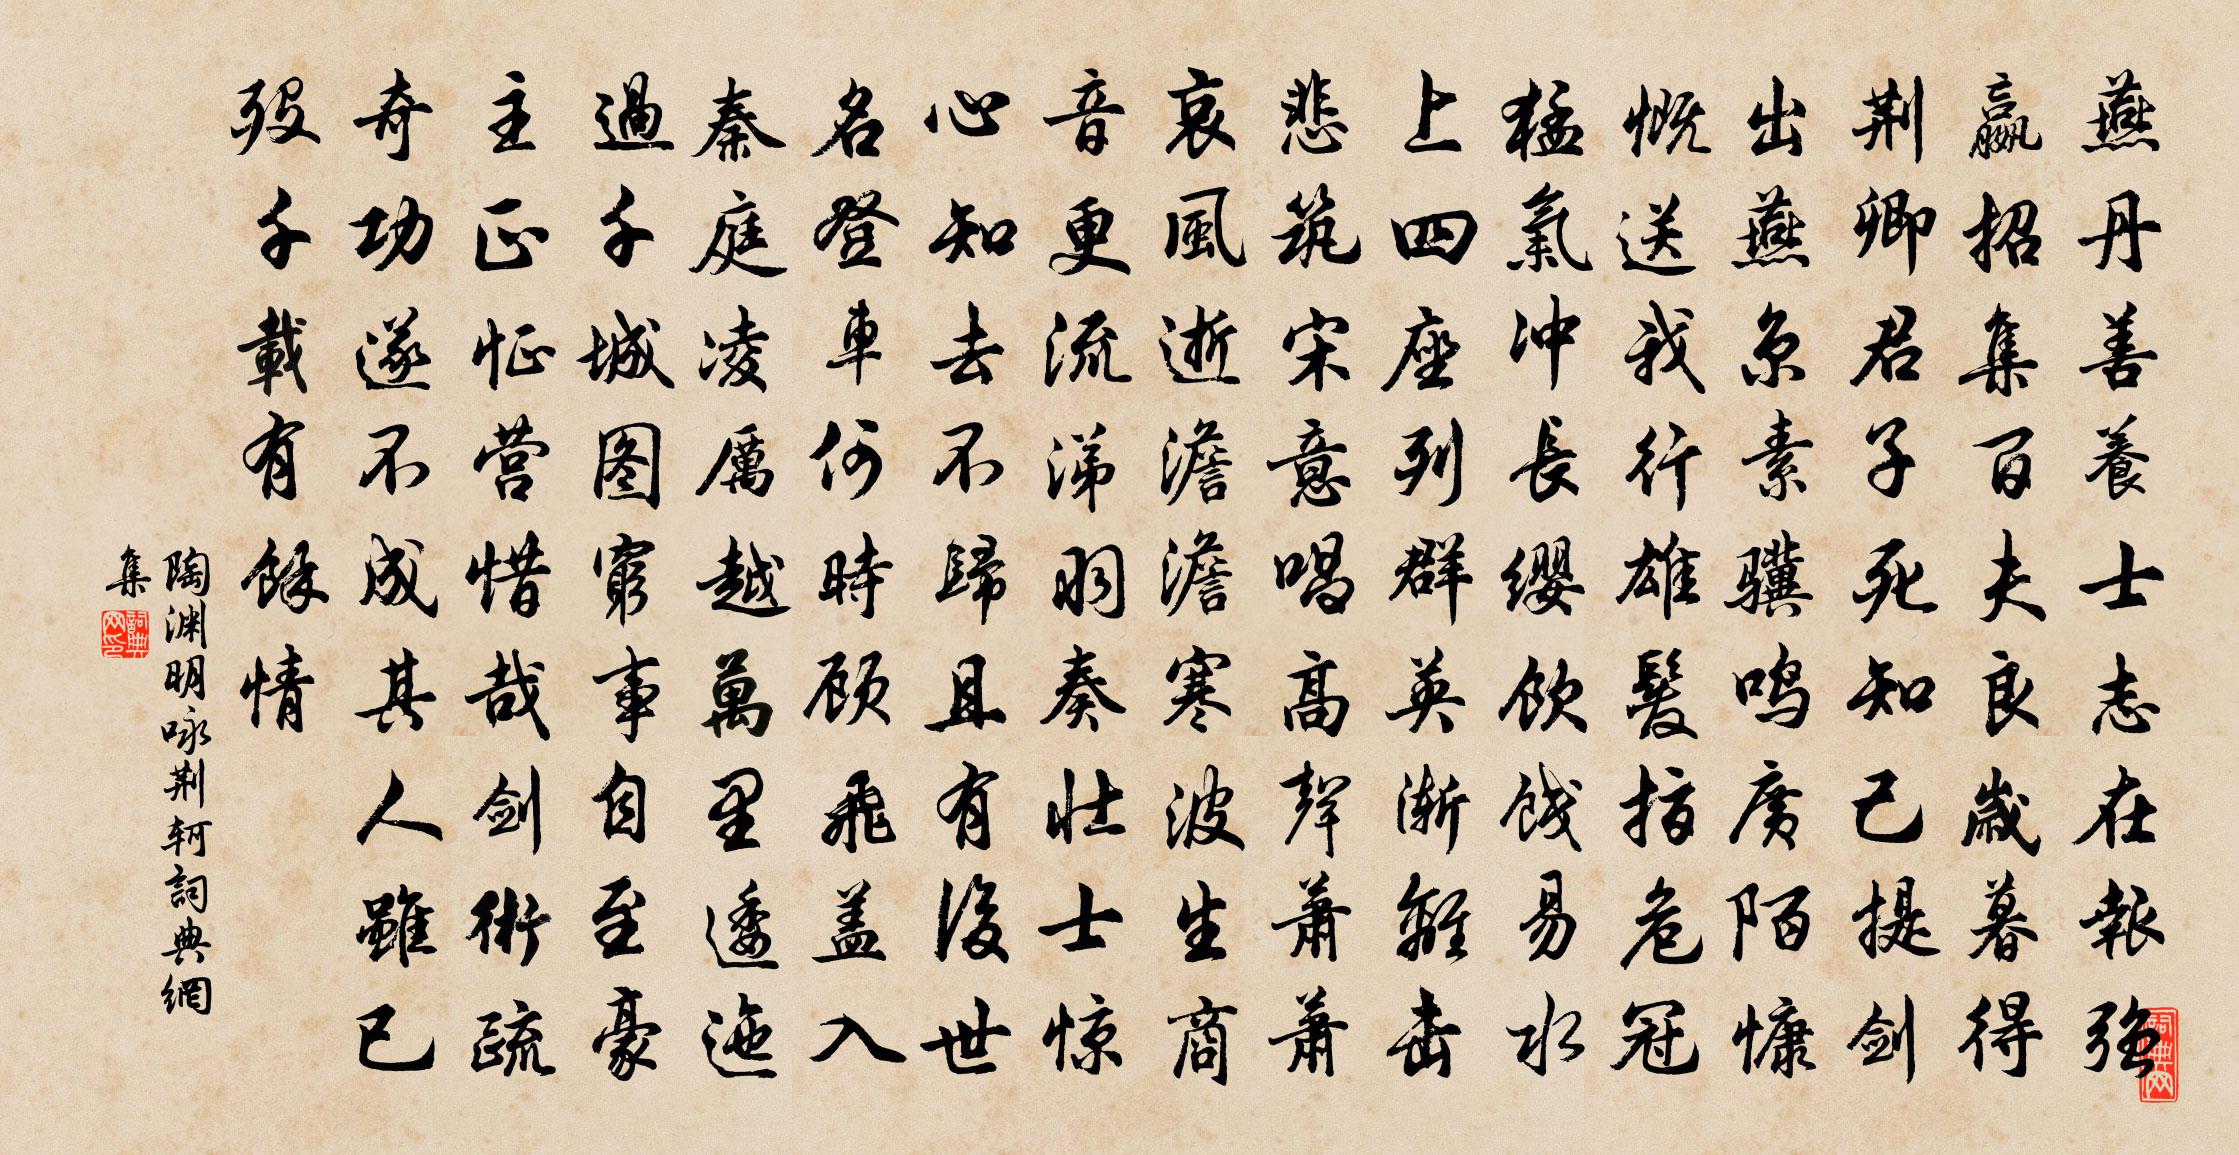 燕丹善養士志在報强
嬴招集百夫良歲暮得
荆卿君子死知己提劍
出燕京素驥鳴廣陌慷
慨送我行雄髮指危冠
猛氣冲長纓飲餞易水
上四座列群英漸離击
悲筑宋意唱高聲蕭蕭
哀風逝澹澹寒波生商
音更流涕羽奏壮士惊
心知去不歸且有後世
名登車何時顾飛盖入
秦庭凌厲越萬里逶迤
過千城图窮事自至豪
主正怔营惜哉劍術疏
奇功遂不成其人雖已
殁千載有餘情
陶渊明咏荆轲詞典網
集
詞典网印
詞典网